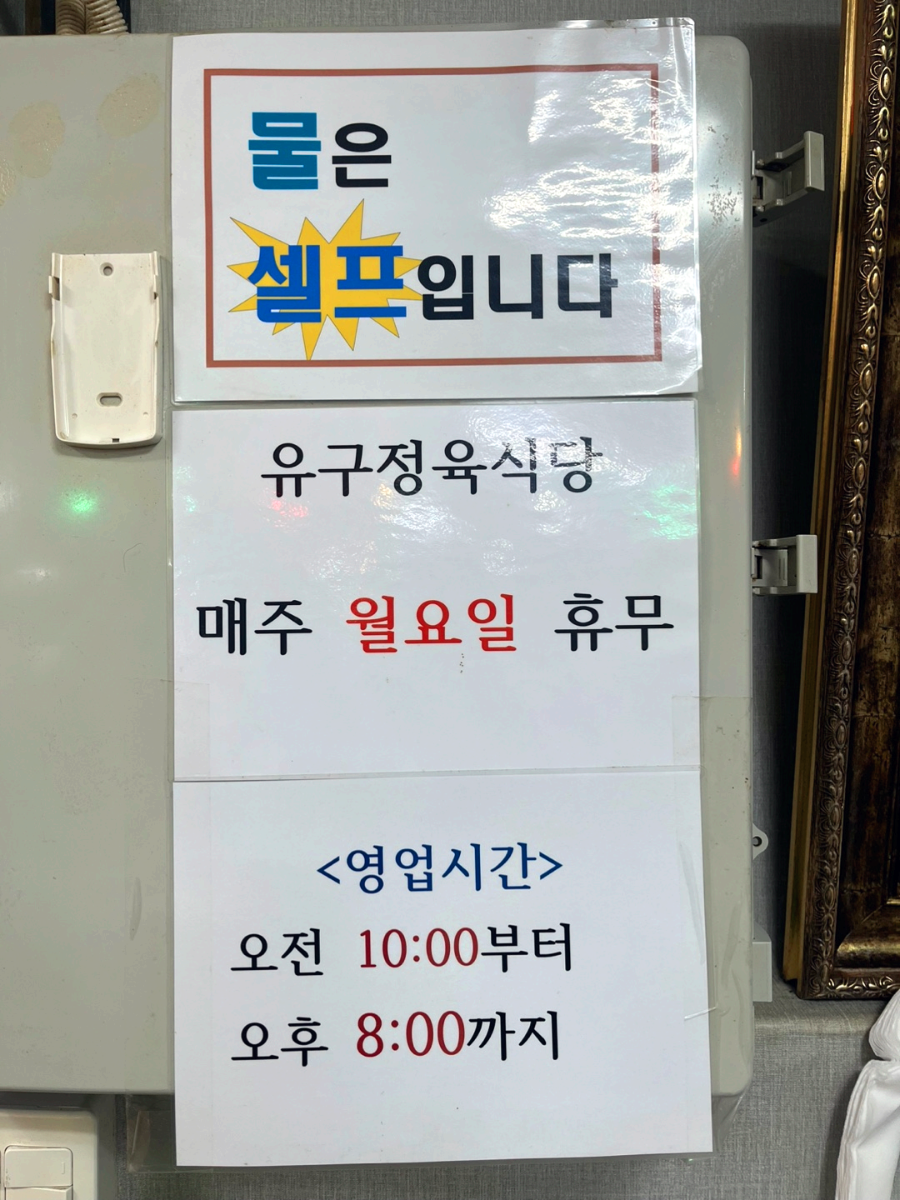 물은
셀프입니다
유구정육식당
매주 월요일 휴무
<영업시간>
오전 10:00부터
오후 8:00까지